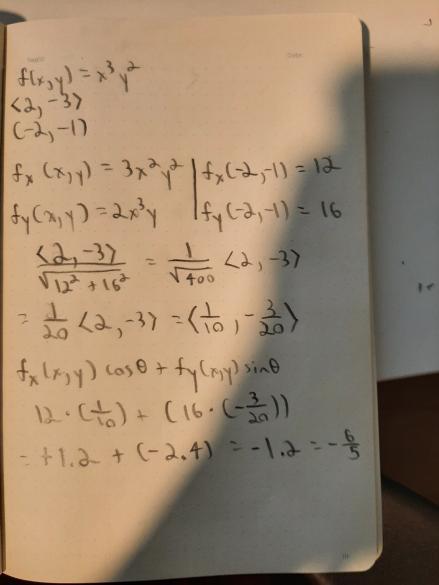 f(x,y) = x³y²
<2, -3>
(-2, -1)
fₓ(x,y) = 3x²y² | fₓ(-2,-1) = 12
fᵧ(x,y) = 2x³y | fᵧ(-2,-1) = 16
<2, -3> / √(12² + 16²) = 1/√400 <2, -3>
= 1/20 <2, -3> = <1/10, -3/20>
fₓ(x,y) cosθ + fᵧ(x,y) sinθ
12 · (1/10) + (16 · (-3/20))
= +1.2 + (-2.4) = -1.2 = -6/5